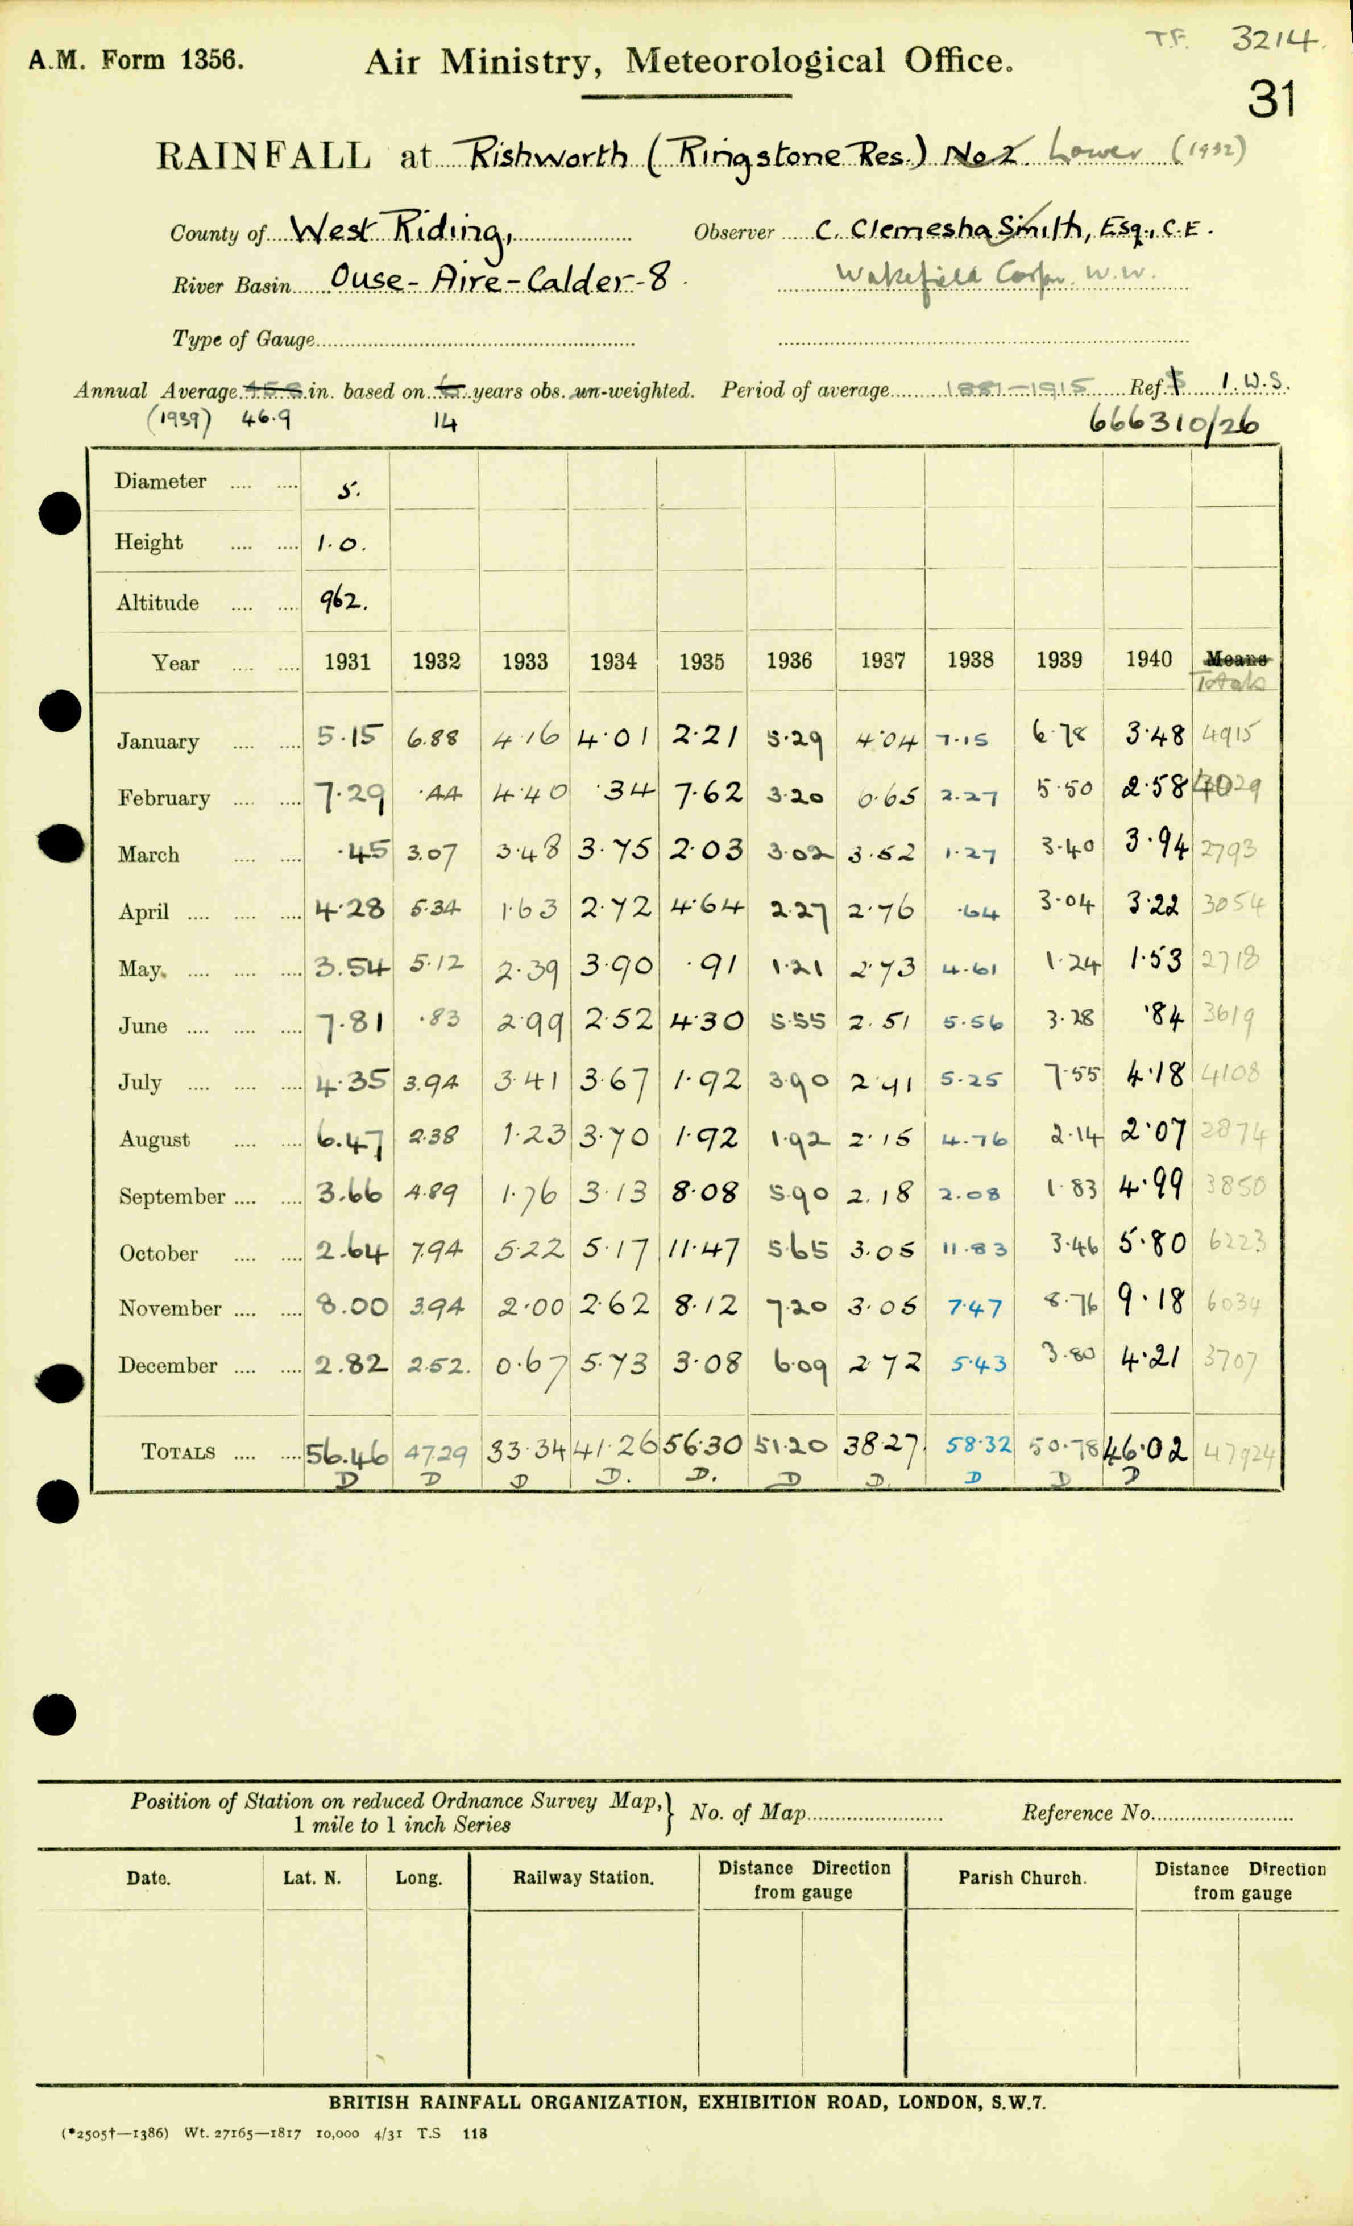 T.F. 3214.
A.M. Form 1356. Air Ministry, Meteorological Office.
31
RAINFALL at Rishworth (Ringstone Res.) No 2. Lower (1932)
County of West Riding, Observer C. Clemesha Smith, Esq., C.E.
River Basin Ouse-Aire-Calder-8. Wakefield Corpn. W.W.
Type of Gauge
Annual Average in. based on years obs. un-weighted. Period of average 1881-1915 Ref. I.W.S.
(1939) 46.9 14 666310/26
Diameter 5.
Height 1.0.
Altitude 962.
Year 1931 1932 1933 1934 1935 1936 1937 1938 1939 1940 Means
Totals
January 5.15 6.88 4.16 4.01 2.21 5.29 4.04 7.15 6.78 3.48 4915
February 7.29 .44 4.40 .34 7.62 3.20 6.65 2.27 5.50 2.58 4029
March .45 3.07 3.48 3.75 2.03 3.02 3.52 1.27 3.40 3.94 2793
April 4.28 5.34 1.63 2.72 4.64 2.27 2.76 .64 3.04 3.22 3054
May 3.54 5.12 2.39 3.90 .91 1.21 2.73 4.61 1.24 1.53 2718
June 7.81 .83 2.99 2.52 4.30 5.55 2.51 5.56 3.28 .84 3619
July 4.35 3.94 3.41 3.67 1.92 3.90 2.91 5.25 7.55 4.18 4108
August 6.47 2.38 1.23 3.70 1.92 1.92 2.15 4.76 2.14 2.07 2874
September 3.66 4.89 1.76 3.13 8.08 5.90 2.18 2.08 1.83 4.99 3850
October 2.64 7.94 5.22 5.17 11.47 5.65 3.05 11.83 3.46 5.80 6223
November 8.00 3.94 2.00 2.62 8.12 7.20 3.05 7.47 8.76 9.18 6034
December 2.82 2.52. 0.67 5.73 3.08 6.09 2.72 5.43 3.80 4.21 3707
TOTALS 56.46 47.29 33.34 41.26 56.30 51.20 38.27. 58.32 50.78 46.02 47924
D D D D. D. D D. D D D
Position of Station on reduced Ordnance Survey Map,} No. of Map Reference No.
1 mile to 1 inch Series
Date. Lat. N. Long. Railway Station. Distance Direction from gauge Parish Church. Distance Direction from gauge
BRITISH RAINFALL ORGANIZATION, EXHIBITION ROAD, LONDON, S.W.7.
(*2505†—1386) Wt. 27165—1817 10,000 4/31 T.S 118